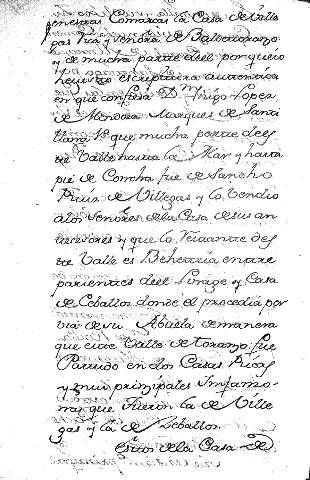 en estas Comarcas la Casa de Ville
gas fue y Señora de
y de mucha parte de el porque io
he visto escriptura autentica
en que confiesa Dn. Iñigo Lopez
de Mendoza Marques de Santi
llana 1º que mucha parte de es
te Valle hasta la Mar y hasta
pie de Concha fue de Sancho
Ruiz de Villegas y lo Vendio
a los Señores de la Casa de sus an
tecesores y que lo restante de es
te Valle es Behetria entre
parientes de el Linage y Casa
de Ceballos donde el procedia por
via de su Abuela de manera
que este Valle de Toranzo fue
Partido en dos Casas Ricas
y mui principales
nas que fueron la de Ville
gas y la de Ceballos.
de la Casa de